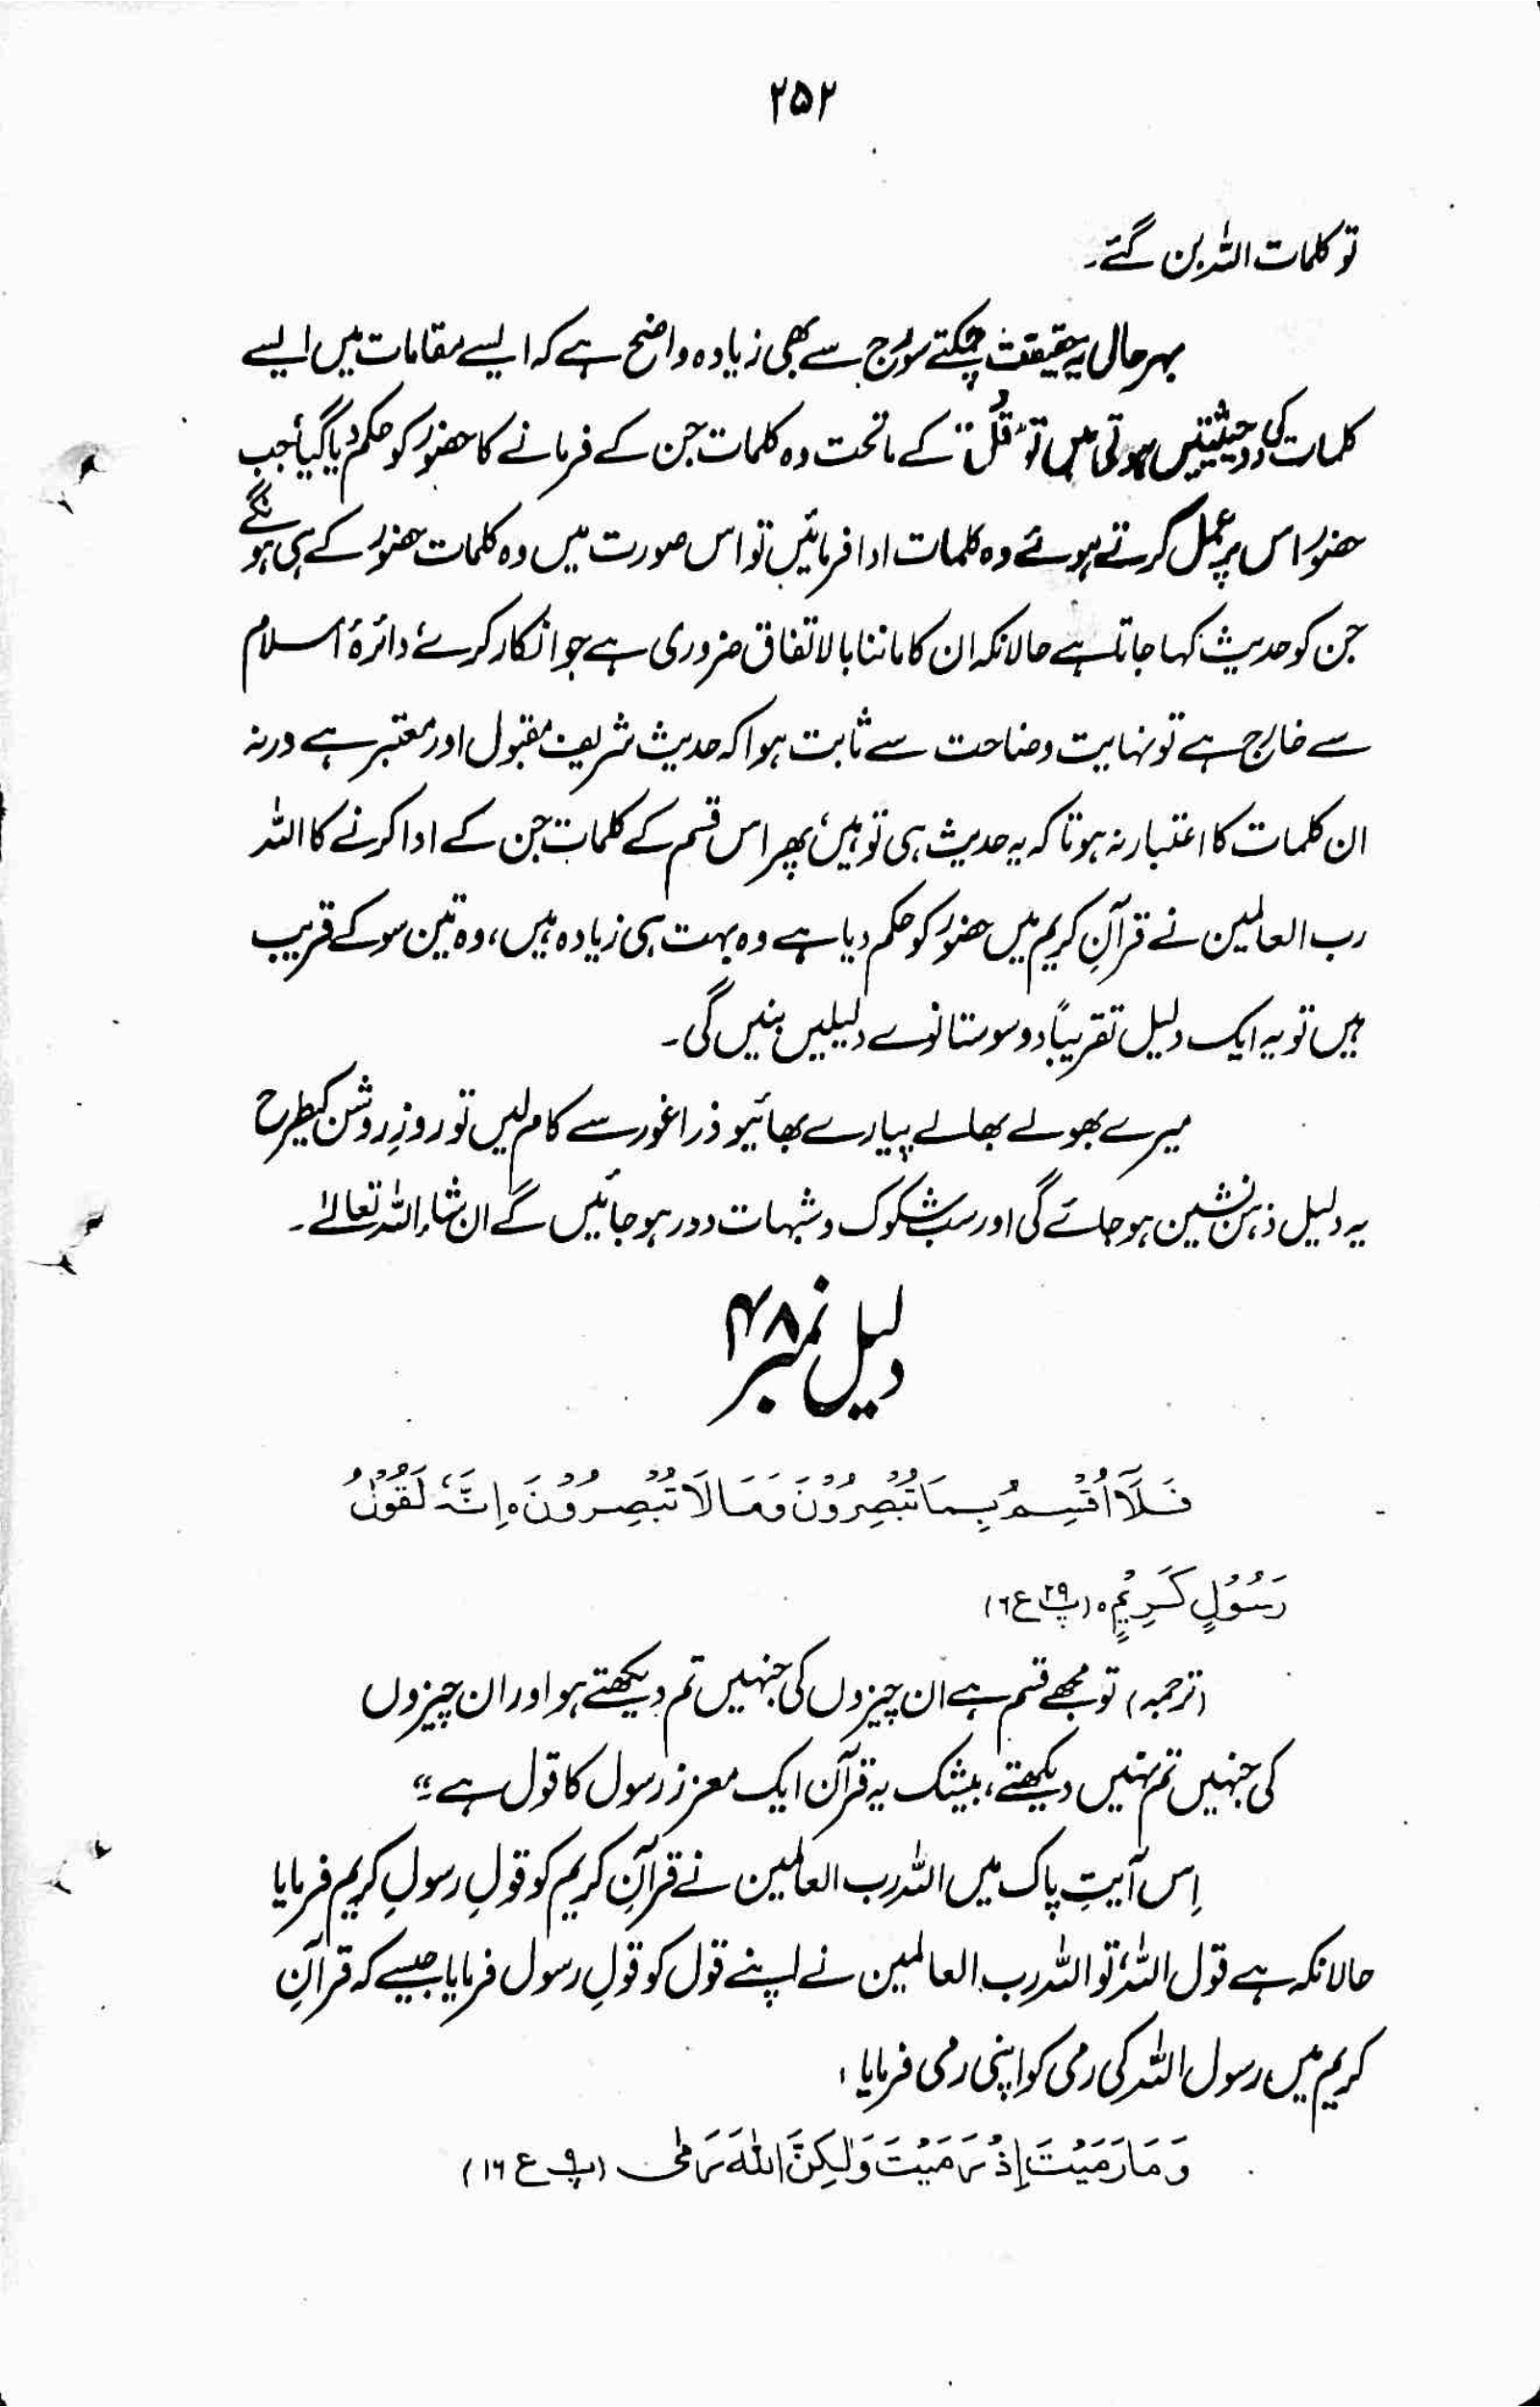 ۲۵۲
تو کلمات اللہ بن گئے۔
بہرحال یہ حقیقت چمکتے سورج سے بھی زیادہ واضح ہے کہ ایسے مقامات میں ایسے
کلمات کی دو حیثیتیں ہوتی ہیں تو "قُلْ" کے ماتحت وہ کلمات جن کے فرمانے کا حضورؐ کو حکم دیا گیا، جب
حضورؐ اس پر عمل کرتے ہوئے وہ کلمات ادا فرمائیں تو اس صورت میں وہ کلمات حضورؐ کے ہی ہونگے
جن کو حدیث کہا جاتا ہے حالانکہ ان کا ماننا بالاتفاق ضروری ہے جو انکار کرے، دائرۂ اسلام
سے خارج ہے تو نہایت وضاحت سے ثابت ہوا کہ حدیث شریف مقبول اور معتبر ہے ورنہ
ان کلمات کا اعتبار نہ ہوتا کہ یہ حدیث ہی تو ہیں، پھر اس قسم کے کلمات جن کے ادا کرنے کا اللہ
رب العالمین نے قرآنِ کریم میں حضورؐ کو حکم دیا ہے وہ بہت ہی زیادہ ہیں، وہ تین سو کے قریب
ہیں تو یہ ایک دلیل تقریباً دو سو ستانوے دلیلیں بنیں گی۔
میرے بھولے بھالے پیارے بھائیو ذرا غور سے کام لیں تو روزِ روشن کیطرح
یہ دلیل ذہن نشین ہو جائے گی اور سب شکوک و شبہات دور ہو جائیں گے ان شاء اللہ تعالیٰ۔
دلیل نمبر ۴۸
فَلَآ اُقْسِمُ بِمَا تُبْصِرُوْنَ وَمَا لَا تُبْصِرُوْنَ ہ اِنَّہٗ لَقَوْلُ
رَسُوْلٍ کَرِیْمٍ ہ (پ ۲۹ ع ۶)
(ترجمہ) تو مجھے قسم ہے ان چیزوں کی جنہیں تم دیکھتے ہو اور ان چیزوں
کی جنہیں تم نہیں دیکھتے، بیشک یہ قرآن ایک معزز رسول کا قول ہے۔"
اِس آیتِ پاک میں اللہ رب العالمین نے قرآنِ کریم کو قولِ رسولِ کریم فرمایا
حالانکہ ہے قول اللہ، تو اللہ رب العالمین نے اپنے قول کو قولِ رسول فرمایا جیسے کہ قرآنِ
کریم میں رسول اللہ کی رمی کو اپنی رمی فرمایا :
وَمَا رَمَیْتَ اِذْ رَمَیْتَ وَلٰکِنَّ اللہَ رَمٰی (پ ۹ ع ۱۶)